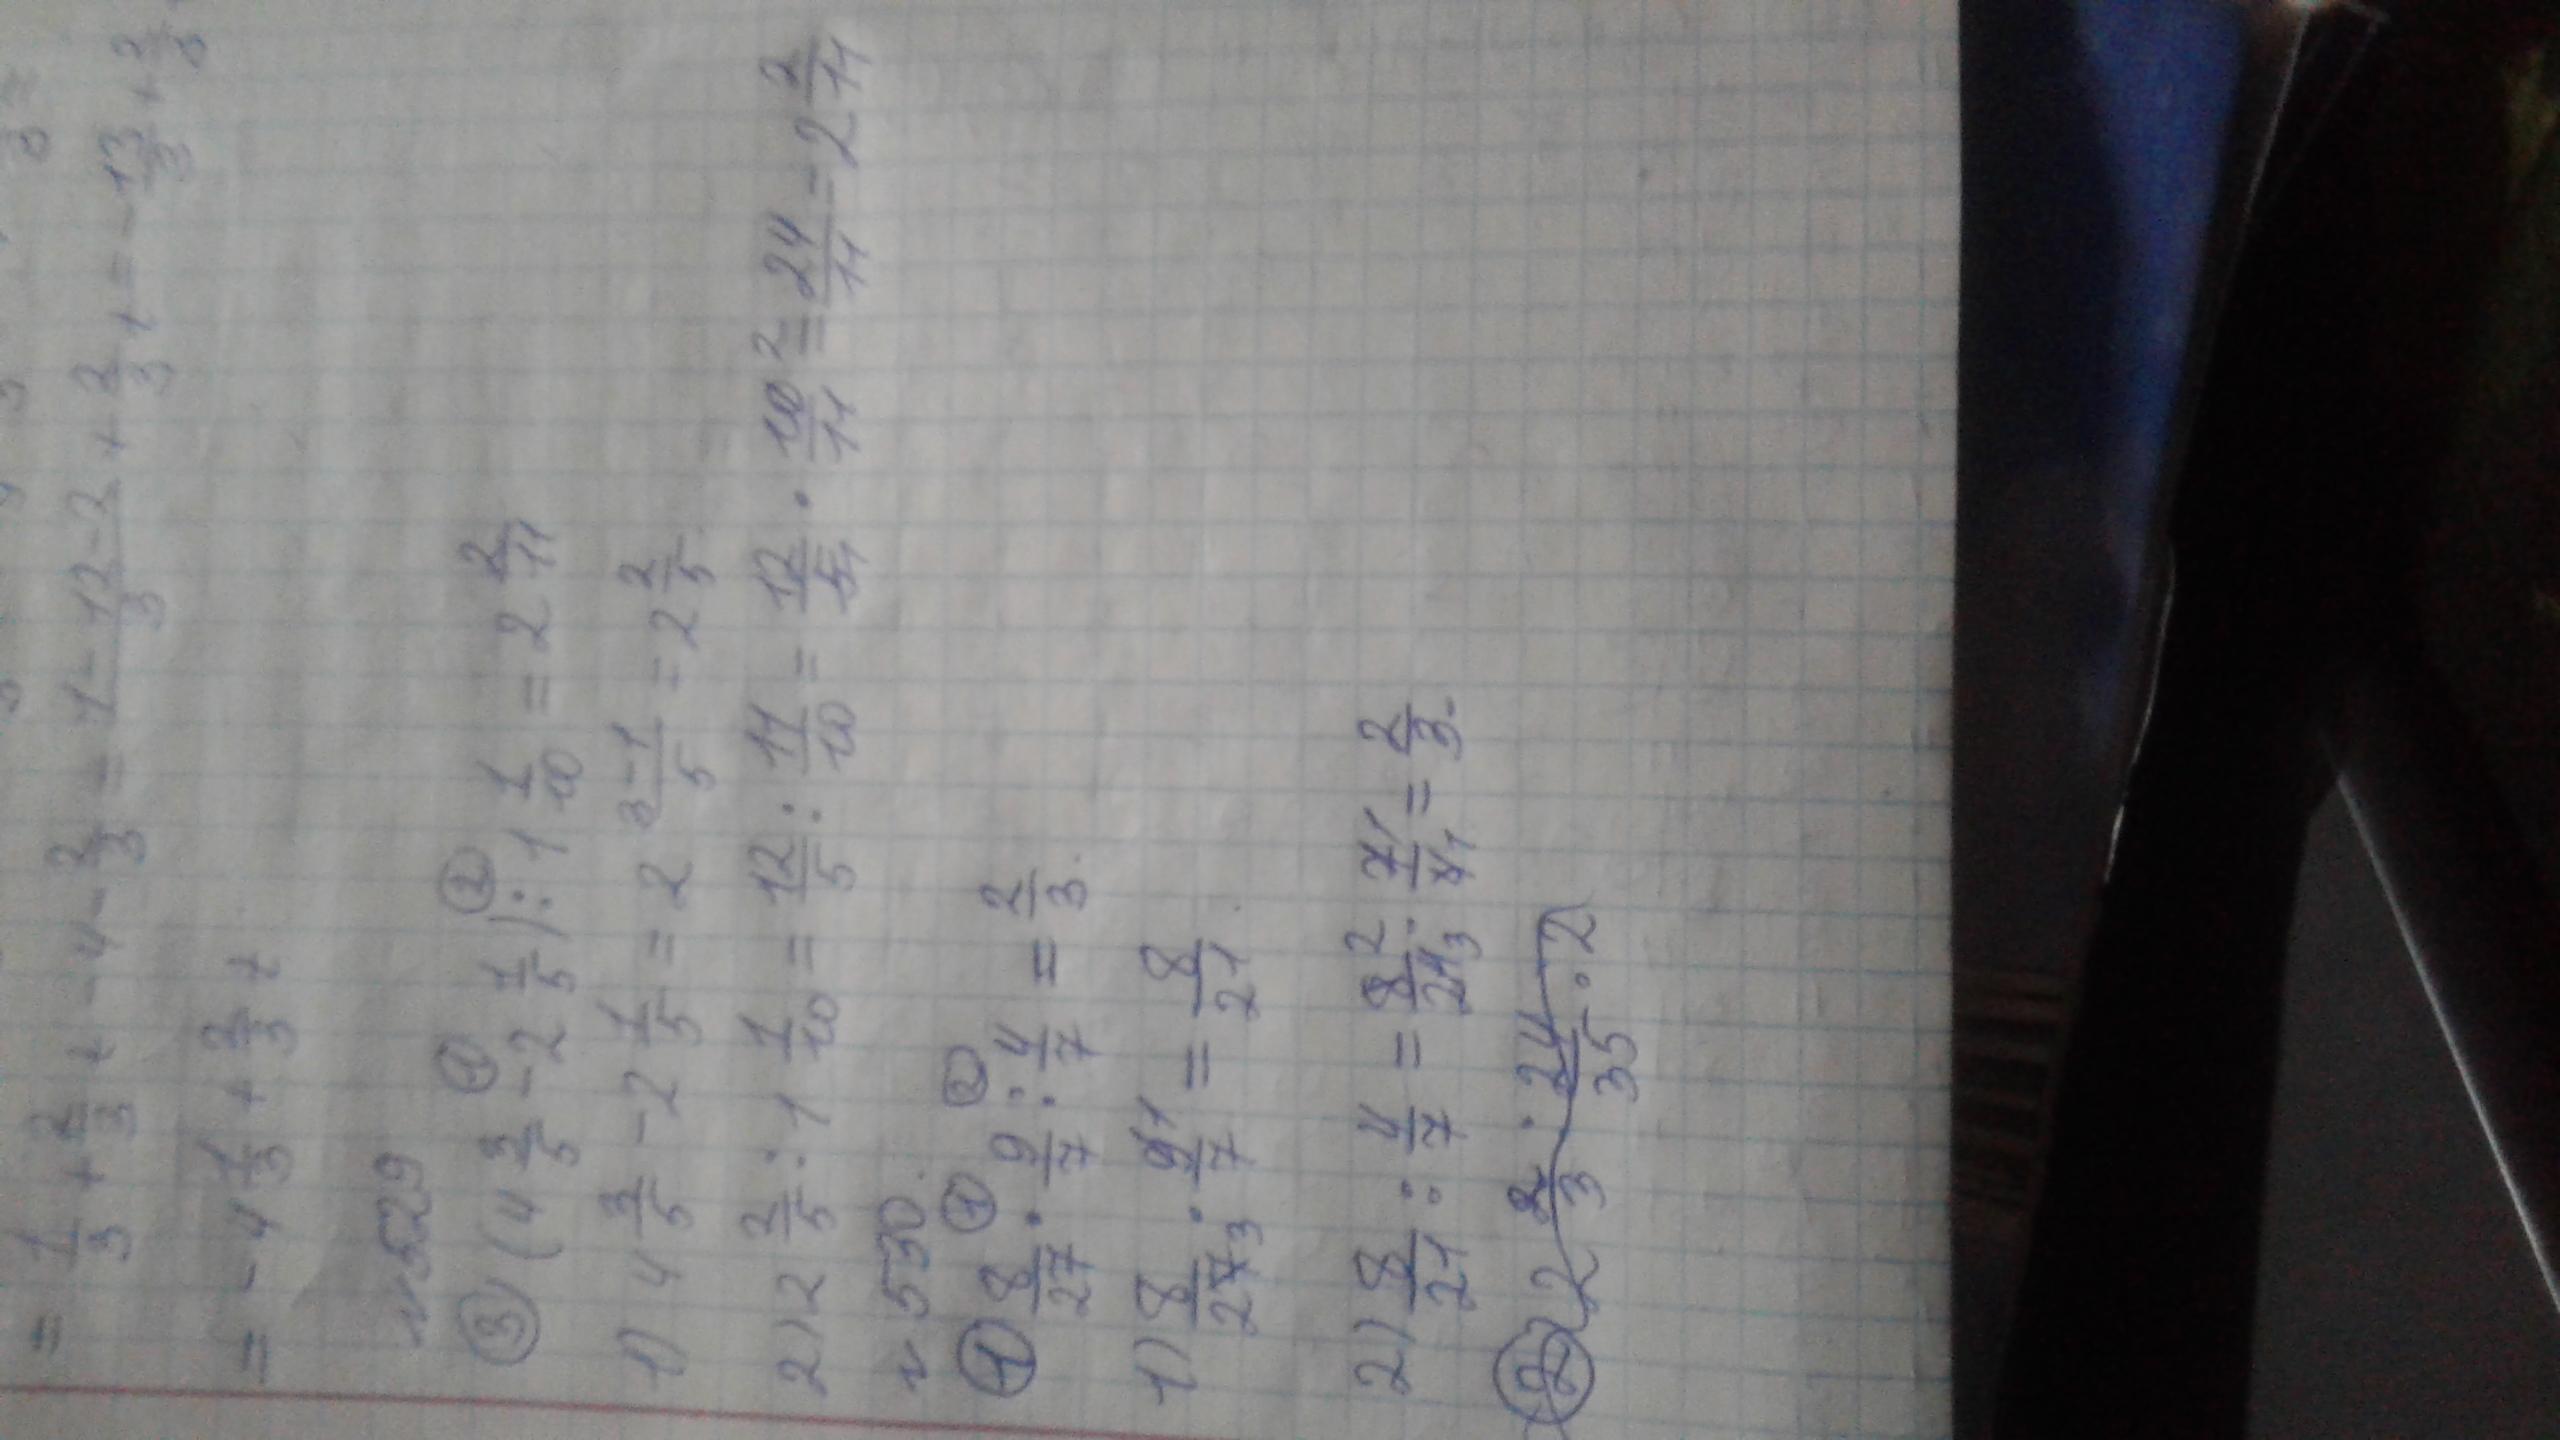 = 1/3 + 2/3 t - 4 - 2/3 = 1 - 12 - 2/3 + 2/3 t = - 13/3 + 2/3
= - 4 1/3 + 2/3 t
N 529
③ (4 3/5 - 2 1/5) : 1 1/10 = 2 2/11
1) 4 3/5 - 2 1/5 = 2 3-1/5 = 2 2/5.
2) 2 2/5 : 1 1/10 = 12/5 : 11/10 = 12/5 1 · 10 2/11 = 24/11 = 2 2/11
N 530.
① 8/27 · 9/7 : 4/7 = 2/3.
1) 8/27 3 · 9 1/7 = 8/21.
2) 8/21 : 4/7 = 8 2/21 3 · 7 1/4 1 = 2/3.
② 2 2/3 · 24/35 : 2